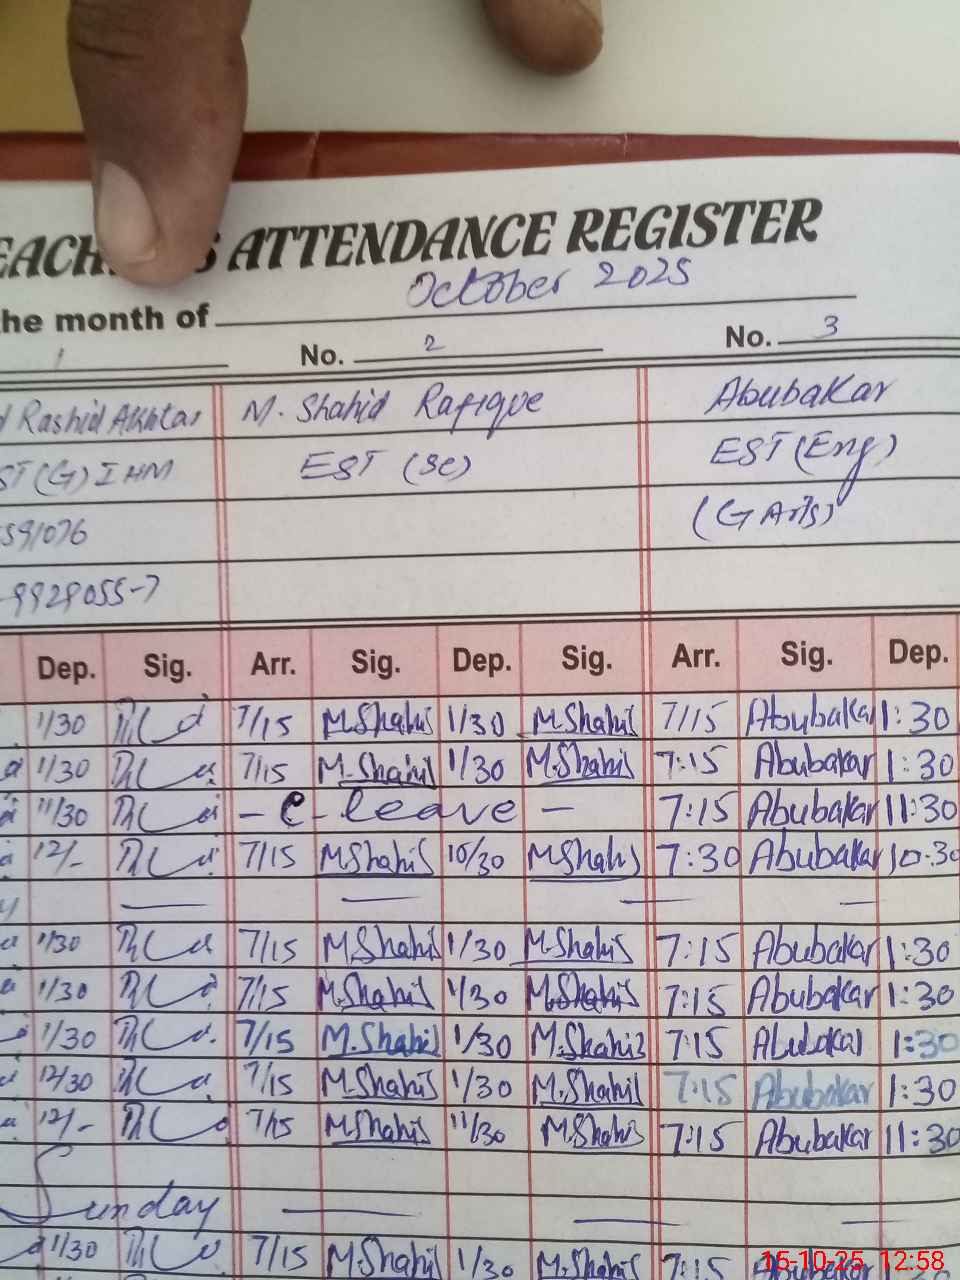 ATTENDANCE REGISTER
the month of October 2025
1 No. 2 No. 3
Rashid Akhtar M. Shahid Rafique Abubakar
ST(G) IHM EST (Sc) EST (Eng)
591076 (G Arts)
-9929055-7
Dep. Sig. Arr. Sig. Dep. Sig. Arr. Sig. Dep.
1/30 7/15 M.Shahid 1/30 M.Shahid 7/15 Abubakar 1:30
1/30 7/15 M.Shahid 1/30 M.Shahid 7:15 Abubakar 1:30
11/30 - C-leave - 7:15 Abubakar 11:30
12/- 7/15 M.Shahid 10/30 M.Shahid 7:30 Abubakar 10:30
1/30 7/15 M.Shahid 1/30 M.Shahid 7:15 Abubakar 1:30
1/30 7/15 M.Shahid 1/30 M.Shahid 7:15 Abubakar 1:30
1/30 7/15 M.Shahid 1/30 M.Shahid 7:15 Abubakar 1:30
12/30 7/15 M.Shahid 1/30 M.Shahid 7:15 Abubakar 1:30
12/- 7/15 M.Shahid 11/30 M.Shahid 7:15 Abubakar 11:30
Sunday
1/30 7/15 M.Shahid 1/30 M.Shahid 7:15
15-10-25 12:58